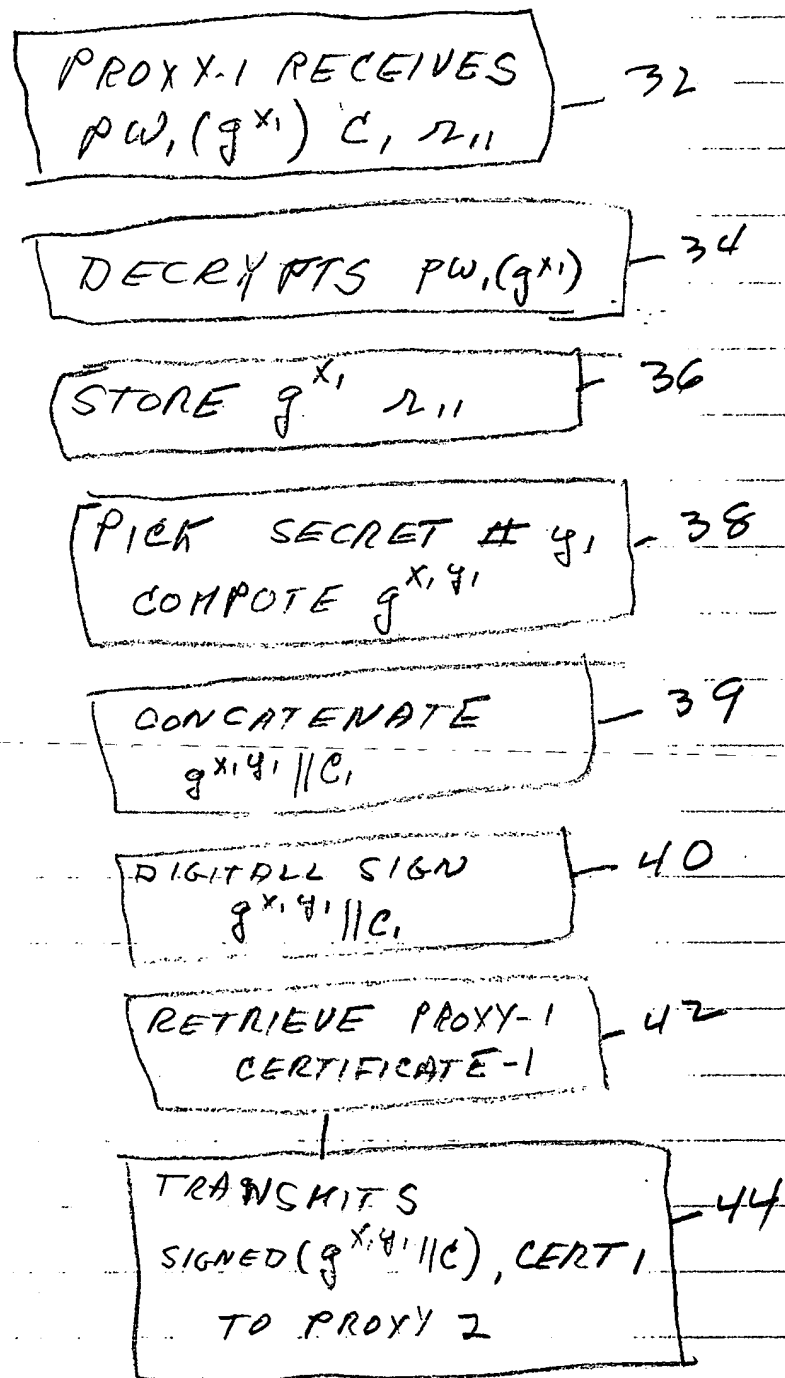 PROXY-1 RECEIVES 32
PW₁(g^x₁) C₁ r₁₁
DECRYPTS PW₁(g^x₁) 34
STORE g^x₁ r₁₁ 36
PICK SECRET # y₁ 38
COMPOTE g^x₁y₁
CONCATENATE 39
g^x₁y₁||C₁
DIGITALL SIGN 40
g^x₁y₁||C₁
RETRIEVE PROXY-1 42
CERTIFICATE-1
TRANSMITS 44
SIGNED(g^x₁y₁||C), CERT 1
TO PROXY 2